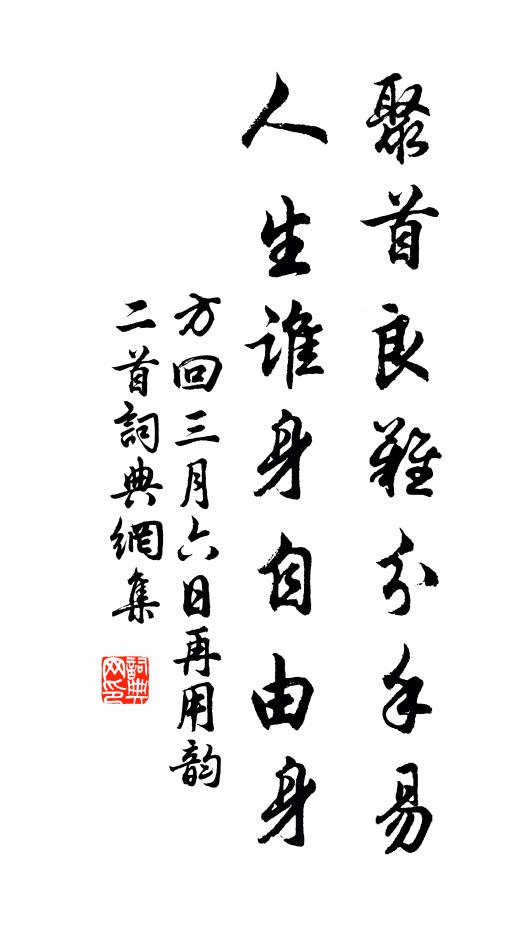 聚首良難分手易
人生誰身自由身
方回三月六日再用韵
二首詞典網集
詞典
网印